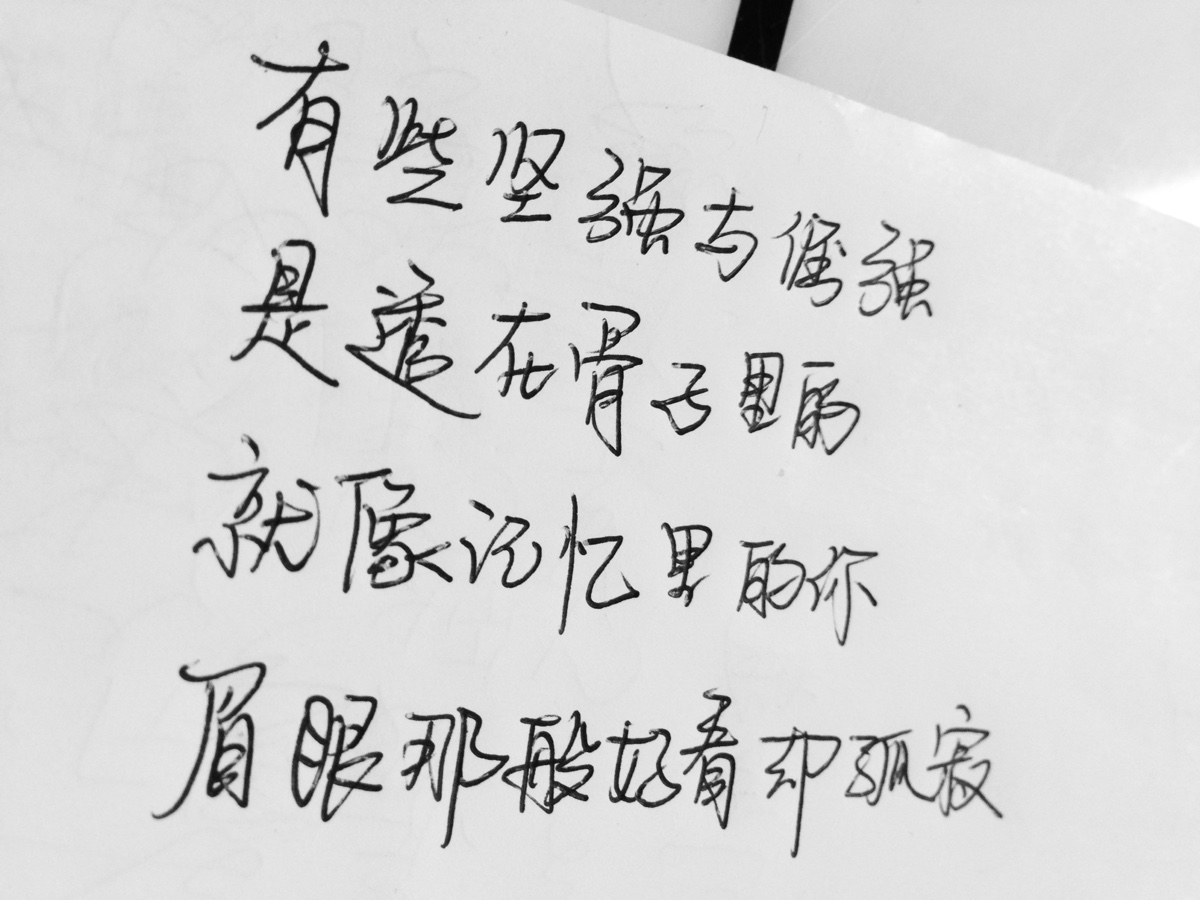 有些坚强与倔强
是透在骨子里的
就像记忆里的你
眉眼那般好看却孤寂